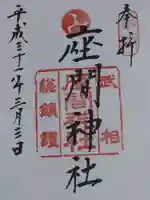 奉拝
武相
座間神社
総鎮護
平成三十一年三月三日